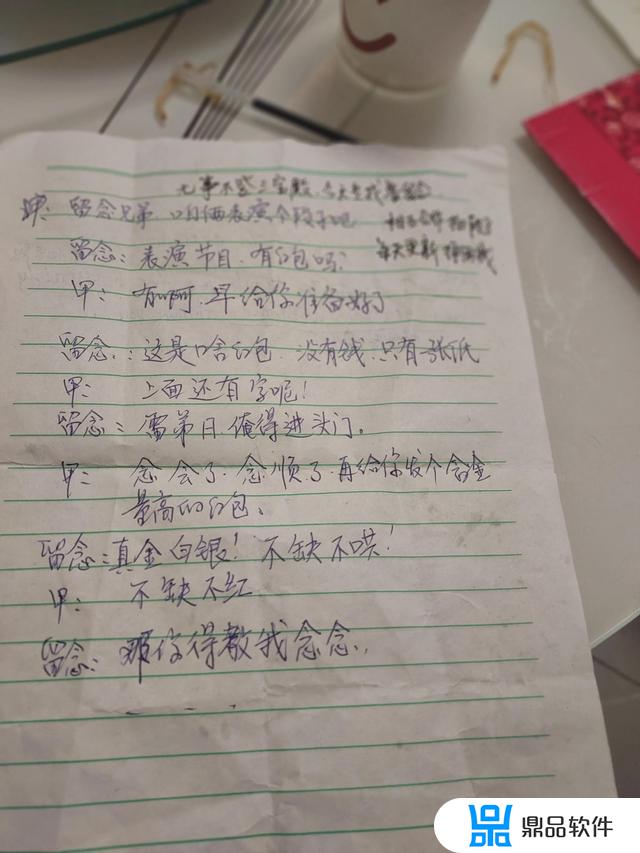 无事不登三宝殿,今天来找
甲: 留念兄弟,咱俩表演个段子吧
每天更新
留念: 表演节目,有红包吗?
甲: 有啊,早给你准备好了
留念: 这是啥红包,没有钱,只有一张纸
甲: 上面还有字呢!
留念: 俺得进头门。
甲: 念会了,念顺了,再给你发个含金
量高的红包。
留念: 真金白银! 不缺不哄!
甲: 不缺不红
留念: 那你得教我念念.
鼎品软件